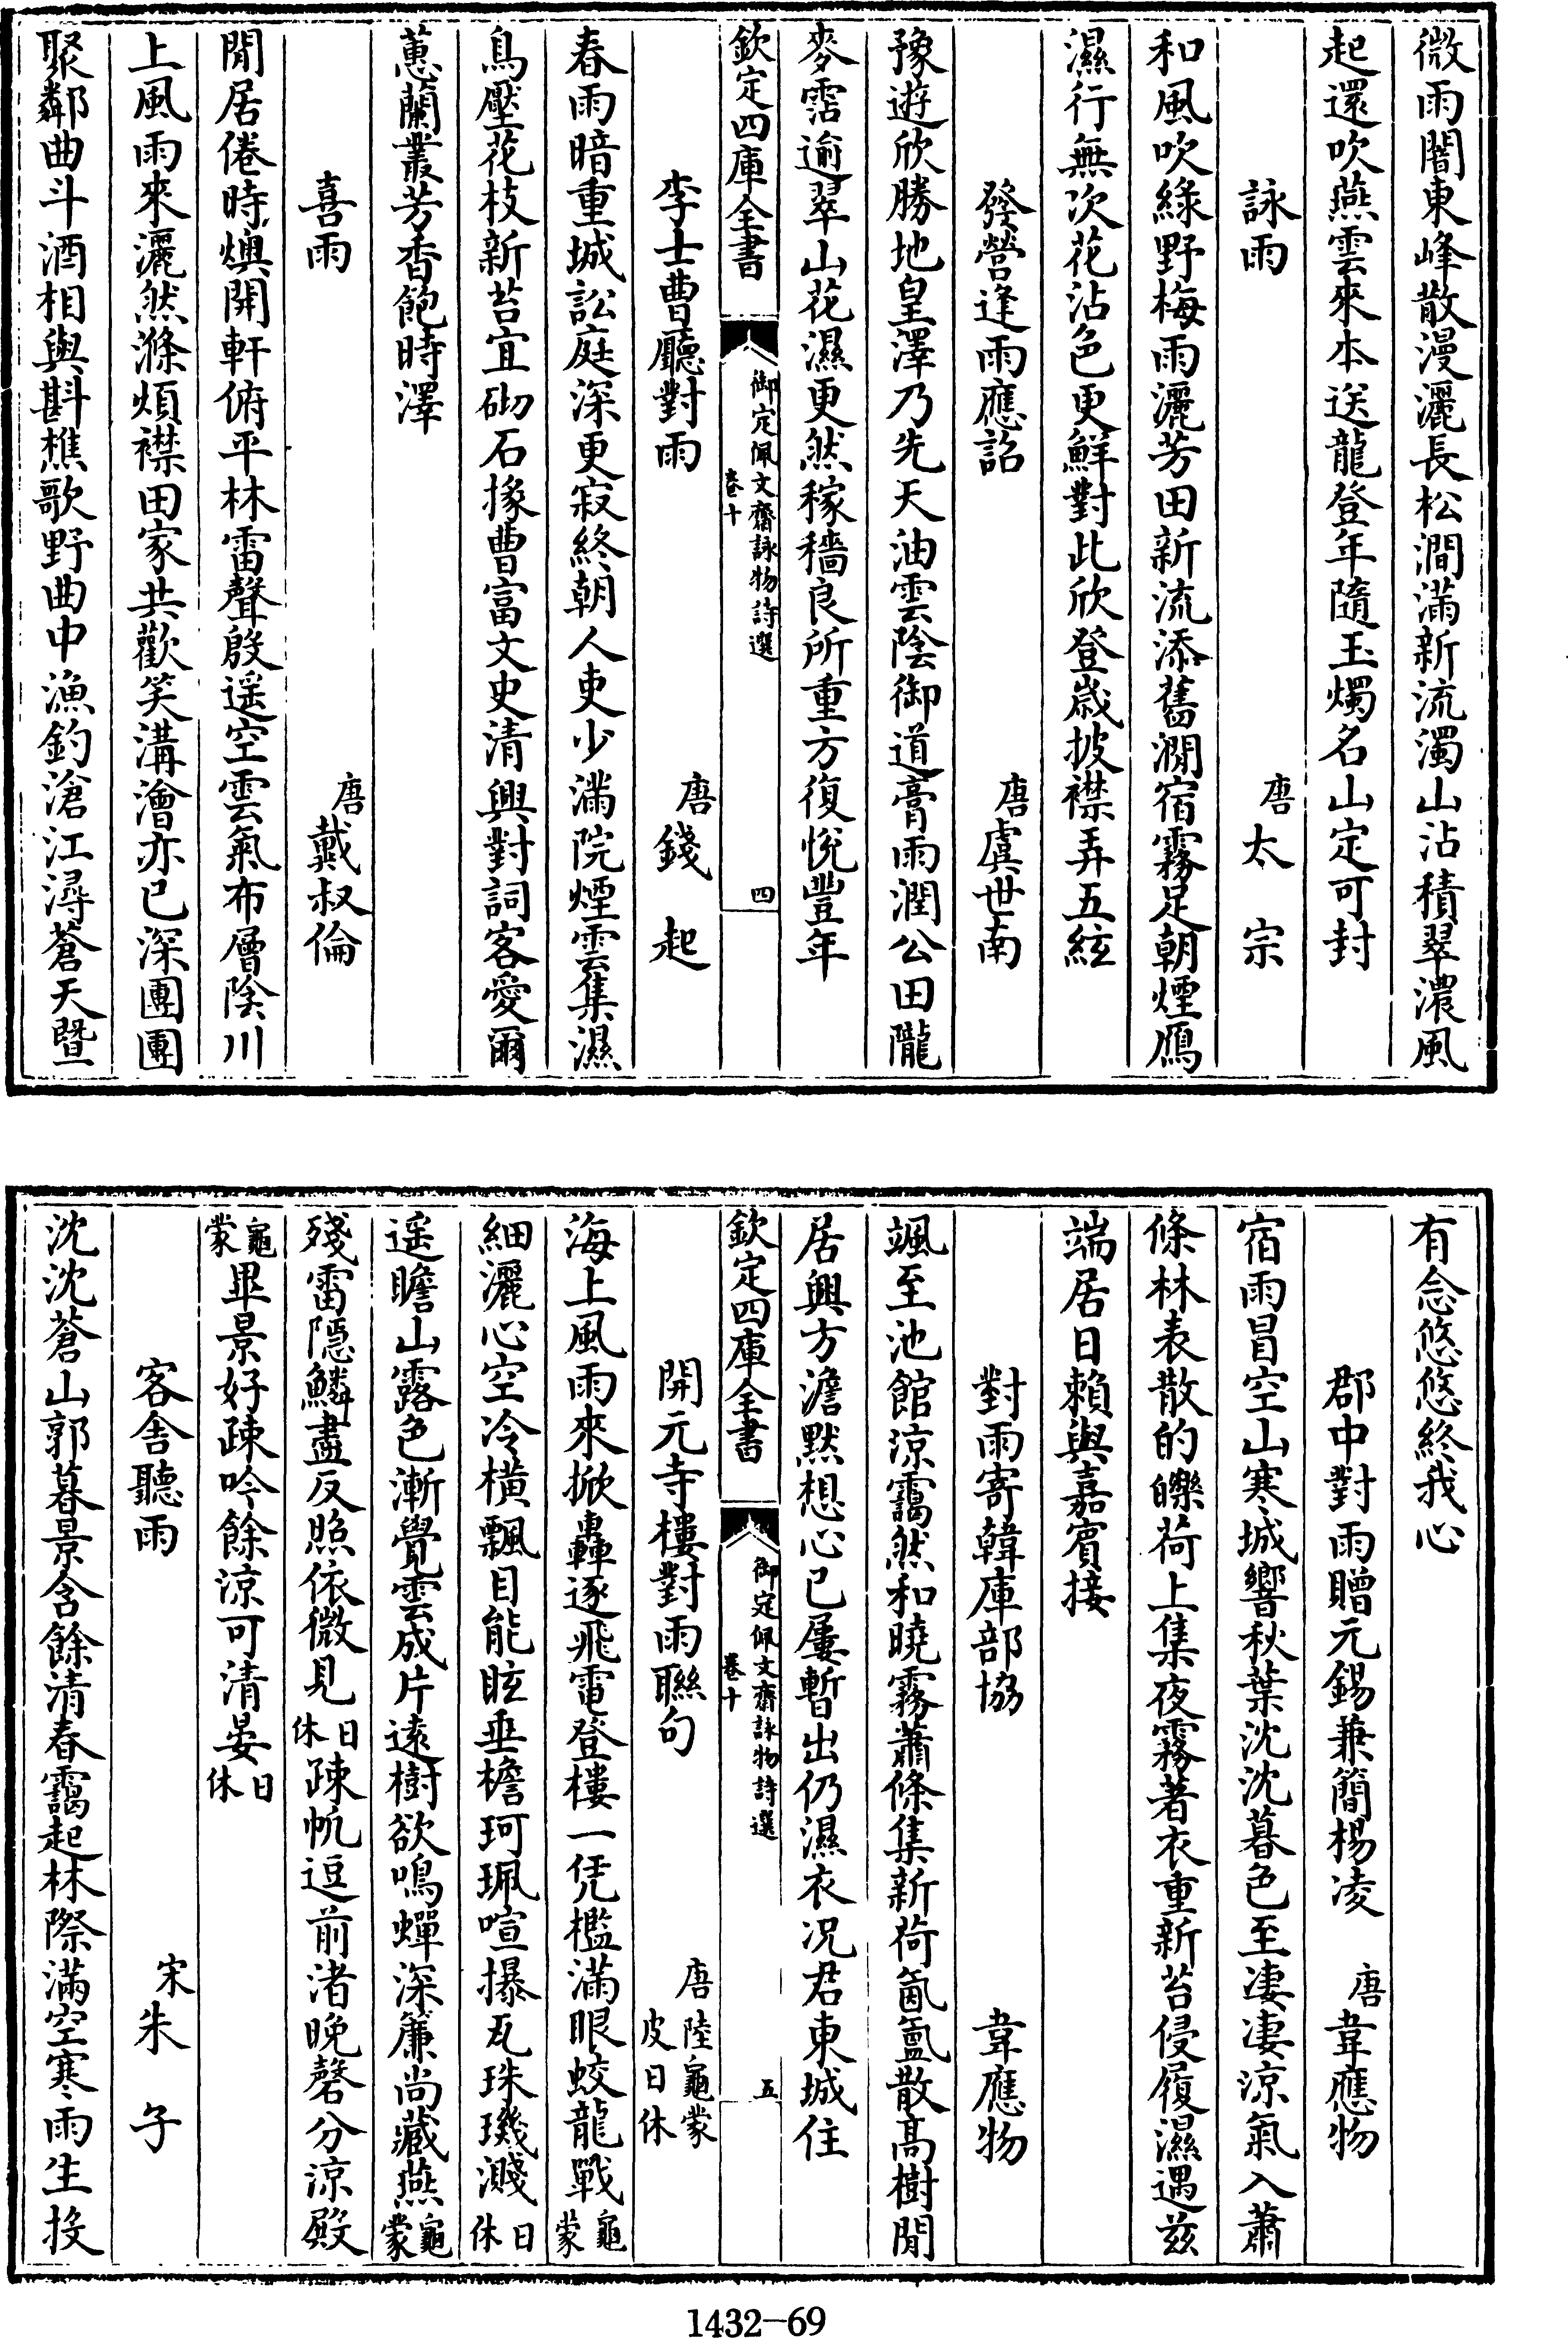 微雨闇東峰散漫灑長松澗滿新流濁山沾積翠濃風
起還吹燕雲來本送龍登年隨玉燭名山定可封
詠雨　唐太宗
和風吹綠野梅雨灑芳田新流添舊澗宿霧足朝煙鴈
濕行無次花沾色更鮮對此欣登歲披襟弄五絃
發營逢雨應詔　唐虞世南
豫遊欣勝地皇澤乃先天油雲陰御道膏雨潤公田隴
麥霑逾翠山花濕更然稼穡良所重方復悅豐年
欽定四庫全書　御定佩文齋詠物詩選　卷十　四
李士曹廳對雨　唐錢起
春雨暗重城訟庭深更寂終朝人吏少滿院煙雲集濕
鳥壓花枝新苔宜砌石掾曹富文史清興對詞客愛爾
蕙蘭叢芳香飽時澤
喜雨　唐戴叔倫
閒居倦時燠開軒俯平林雷聲殷遥空雲氣布層陰川
上風雨來灑然滌煩襟田家共歡笑溝澮亦已深團團
聚鄰曲斗酒相與斟樵歌野曲中漁釣滄江潯蒼天暨
有念悠悠終我心
郡中對雨贈元錫兼簡楊凌　唐韋應物
宿雨冒空山寒城響秋葉沈沈暮色至凄凄涼氣入蕭
條林表散的皪荷上集夜霧著衣重新苔侵履濕遇兹
端居日賴與嘉賓接
對雨寄韓庫部協　韋應物
颯至池館涼靄然和曉霧蕭條集新荷氤氳散高樹閒
居興方澹默想心已屢暫出仍濕衣况君東城住
欽定四庫全書　御定佩文齋詠物詩選　卷十　五
開元寺樓對雨聯句　唐陸龜蒙　皮日休
海上風雨來掀轟逐飛電登樓一凭檻滿眼蛟龍戰龜蒙
細灑心空冷橫飄目能眩垂檐珂珮喧㩧瓦珠璣濺日休
遥瞻山露色漸覺雲成片遠樹欲鳴蟬深簾尚藏燕龜蒙
殘雷隱鱗盡反照依微見日休疎帆逗前渚晚磬分涼殿
龜蒙畢景好疎吟餘涼可清晏日休
客舍聽雨　宋朱子
沈沈蒼山郭暮景含餘清春靄起林際滿空寒雨生投
1432-69